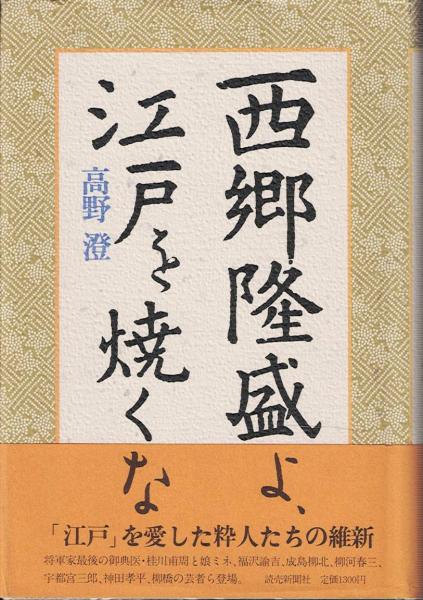 西郷隆盛よ、
江戸を焼くな
高野 澄
「江戸」を愛した粋人たちの維新
将軍家最後の御典医・桂川甫周と娘ミネ、福沢諭吉、成島柳北、柳河春三、
宇都宮三郎、神田孝平、柳橋の芸者ら登場。 読売新聞社 定価1300円